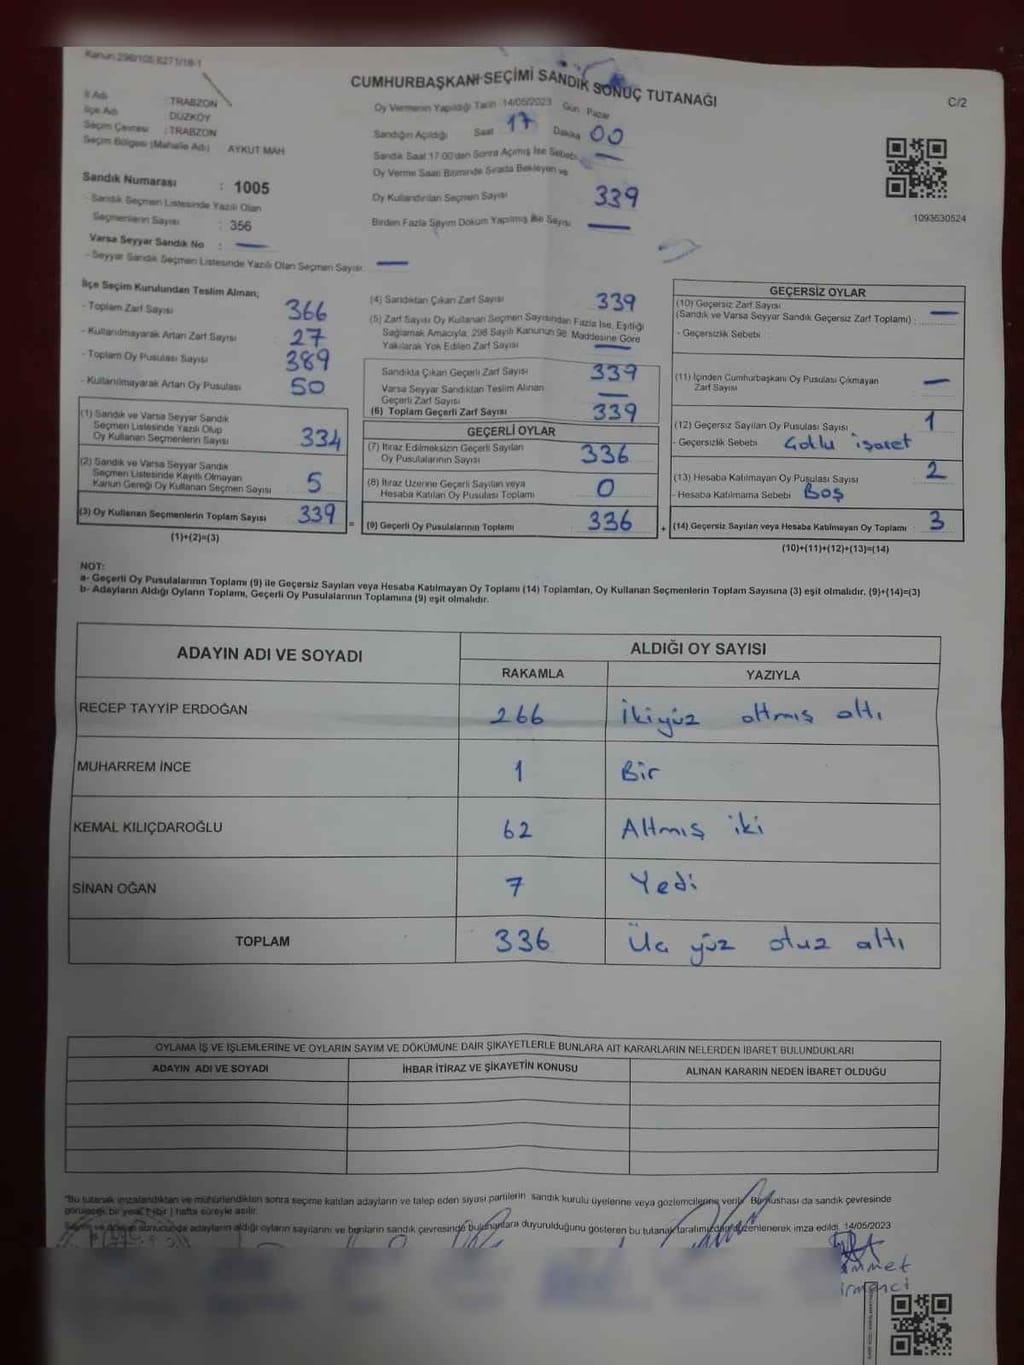 Kanun:298/105.6271/18-1
CUMHURBAŞKANI SEÇİMİ SANDIK SONUÇ TUTANAĞI
C/2
İl Adı : TRABZON
İlçe Adı : DÜZKÖY
Seçim Çevresi : TRABZON
Seçim Bölgesi (Mahalle Adı) AYKUT MAH
Sandık Numarası : 1005
- Sandık Seçmen Listesinde Yazılı Olan
Seçmenlerin Sayısı : 356
Varsa Seyyar Sandık No : —
- Seyyar Sandık Seçmen Listesinde Yazılı Olan Seçmen Sayısı: —
Oy Vermenin Yapıldığı Tarih :14/05/2023 Gün : Pazar
Sandığın Açıldığı Saat 17 Dakika 00
Sandık Saat 17.00'den Sonra Açılmış İse Sebebi —
Oy Verme Saati Bitiminde Sırada Bekleyen ve
Oy Kullandırılan Seçmen Sayısı 339
Birden Fazla Sayım Döküm Yapılmış İse Sayısı —
1093630524
İlçe Seçim Kurulundan Teslim Alınan;
- Toplam Zarf Sayısı 366
- Kullanılmayarak Artan Zarf Sayısı 27
- Toplam Oy Pusulası Sayısı 389
- Kullanılmayarak Artan Oy Pusulası 50
(1) Sandık ve Varsa Seyyar Sandık
Seçmen Listesinde Yazılı Olup
Oy Kullanan Seçmenlerin Sayısı 334
(2) Sandık ve Varsa Seyyar Sandık
Seçmen Listesinde Kayıtlı Olmayan
Kanun Gereği Oy Kullanan Seçmen Sayısı 5
(3) Oy Kullanan Seçmenlerin Toplam Sayısı 339
(1)+(2)=(3)
(4) Sandıktan Çıkan Zarf Sayısı 339
(5) Zarf Sayısı Oy Kullanan Seçmen Sayısından Fazla İse, Eşitliği
Sağlamak Amacıyla, 298 Sayılı Kanunun 98. Maddesine Göre
Yakılarak Yok Edilen Zarf Sayısı —
Sandıkta Çıkan Geçerli Zarf Sayısı 339
Varsa Seyyar Sandıktan Teslim Alınan
Geçerli Zarf Sayısı —
(6) Toplam Geçerli Zarf Sayısı 339
GEÇERLİ OYLAR
(7) İtiraz Edilmeksizin Geçerli Sayılan
Oy Pusulalarının Sayısı 336
(8) İtiraz Üzerine Geçerli Sayılan veya
Hesaba Katılan Oy Pusulası Toplamı 0
= (9) Geçerli Oy Pusulalarının Toplamı 336
GEÇERSİZ OYLAR
(10) Geçersiz Zarf Sayısı
(Sandık ve Varsa Seyyar Sandık Geçersiz Zarf Toplamı) : —
- Geçersizlik Sebebi :
(11) İçinden Cumhurbaşkanı Oy Pusulası Çıkmayan
Zarf Sayısı —
(12) Geçersiz Sayılan Oy Pusulası Sayısı 1
- Geçersizlik Sebebi Çoklu işaret
(13) Hesaba Katılmayan Oy Pusulası Sayısı 2
- Hesaba Katılmama Sebebi Boş
+ (14) Geçersiz Sayılan veya Hesaba Katılmayan Oy Toplamı 3
(10)+(11)+(12)+(13)=(14)
NOT:
a- Geçerli Oy Pusulalarının Toplamı (9) ile Geçersiz Sayılan veya Hesaba Katılmayan Oy Toplamı (14) Toplamları, Oy Kullanan Seçmenlerin Toplam Sayısına (3) eşit olmalıdır. (9)+(14)=(3)
b- Adayların Aldığı Oyların Toplamı, Geçerli Oy Pusulalarının Toplamına (9) eşit olmalıdır.
ADAYIN ADI VE SOYADI
ALDIĞI OY SAYISI
RAKAMLA YAZIYLA
RECEP TAYYİP ERDOĞAN 266 İkiyüz altmış altı
MUHARREM İNCE 1 Bir
KEMAL KILIÇDAROĞLU 62 Altmış iki
SİNAN OĞAN 7 Yedi
TOPLAM 336 Üç yüz otuz altı
OYLAMA İŞ VE İŞLEMLERİNE VE OYLARIN SAYIM VE DÖKÜMÜNE DAİR ŞİKAYETLERLE BUNLARA AİT KARARLARIN NELERDEN İBARET BULUNDUKLARI
ADAYIN ADI VE SOYADI İHBAR İTİRAZ VE ŞİKAYETİN KONUSU ALINAN KARARIN NEDEN İBARET OLDUĞU
"Bu tutanak imzalandıktan ve mühürlendikten sonra seçime katılan adayların ve talep eden siyasi partilerin sandık kurulu üyelerine veya gözlemcilerine verilir. Bir nüshası da sandık çevresinde
görülecek bir yere 1 (bir ) hafta süreyle asılır.
adayların aldığı oyların sayılarını ve bunların sandık çevresinde bulunanlara duyurulduğunu gösteren bu tutanak tarafımızdan düzenlenerek imza edildi. 14/05/2023